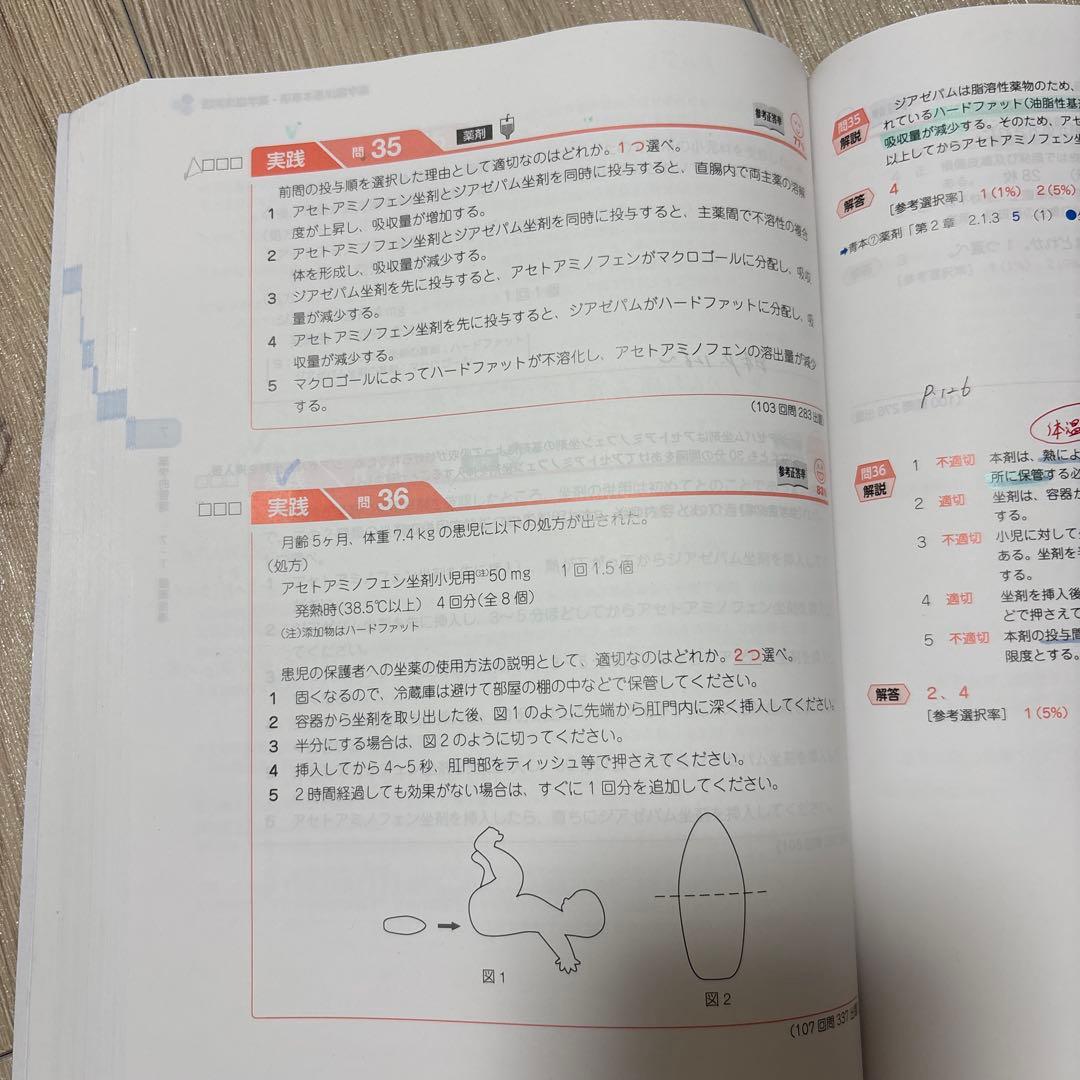 実践 問 35 薬剤 参考正答率 77%
前問の投与順を選択した理由として適切なのはどれか。1つ選べ。
1 アセトアミノフェン坐剤とジアゼパム坐剤を同時に投与すると、直腸内で両主薬の溶解
度が上昇し、吸収量が増加する。
2 アセトアミノフェン坐剤とジアゼパム坐剤を同時に投与すると、主薬間で不溶性の複合
体を形成し、吸収量が減少する。
3 ジアゼパム坐剤を先に投与すると、アセトアミノフェンがマクロゴールに分配し、吸収
量が減少する。
4 アセトアミノフェン坐剤を先に投与すると、ジアゼパムがハードファットに分配し、吸
収量が減少する。
5 マクロゴールによってハードファットが不溶化し、アセトアミノフェンの溶出量が減少
する。
(103回問283出題
実践 問 36 参考正答率 83%
月齢5ヶ月、体重7.4kgの患児に以下の処方が出された。
(処方)
アセトアミノフェン坐剤小児用(注)50mg 1回1.5個
発熱時(38.5℃以上) 4回分(全8個)
(注)添加物はハードファット
患児の保護者への坐薬の使用方法の説明として、適切なのはどれか。2つ選べ。
1 固くなるので、冷蔵庫は避けて部屋の棚の中などで保管してください。
2 容器から坐剤を取り出した後、図1のように先端から肛門内に深く挿入してください。
3 半分にする場合は、図2のように切ってください。
4 挿入してから4〜5秒、肛門部をティッシュ等で押さえてください。
5 2時間経過しても効果がない場合は、すぐに1回分を追加してください。
図1
図2
(107回問337出題
問35 解説
ジアゼパムは脂溶性薬物のため、
れているハードファット(油脂性基
吸収量が減少する。そのため、アセ
以上してからアセトアミノフェン坐
解答 4
[参考選択率] 1(1%) 2(5%)
➡青本⑦薬剤「第2章 2.1.3 5 (1)
P.126
体温
問36 解説
1 不適切 本剤は、熱によ
所に保管する必
2 適切 坐剤は、容器か
する。
3 不適切 小児に対して
ある。坐剤を
する。
4 適切 坐剤を挿入後
どで押さえて
5 不適切 本剤の投与間
限度とする。
解答 2、4
[参考選択率] 1(5%)